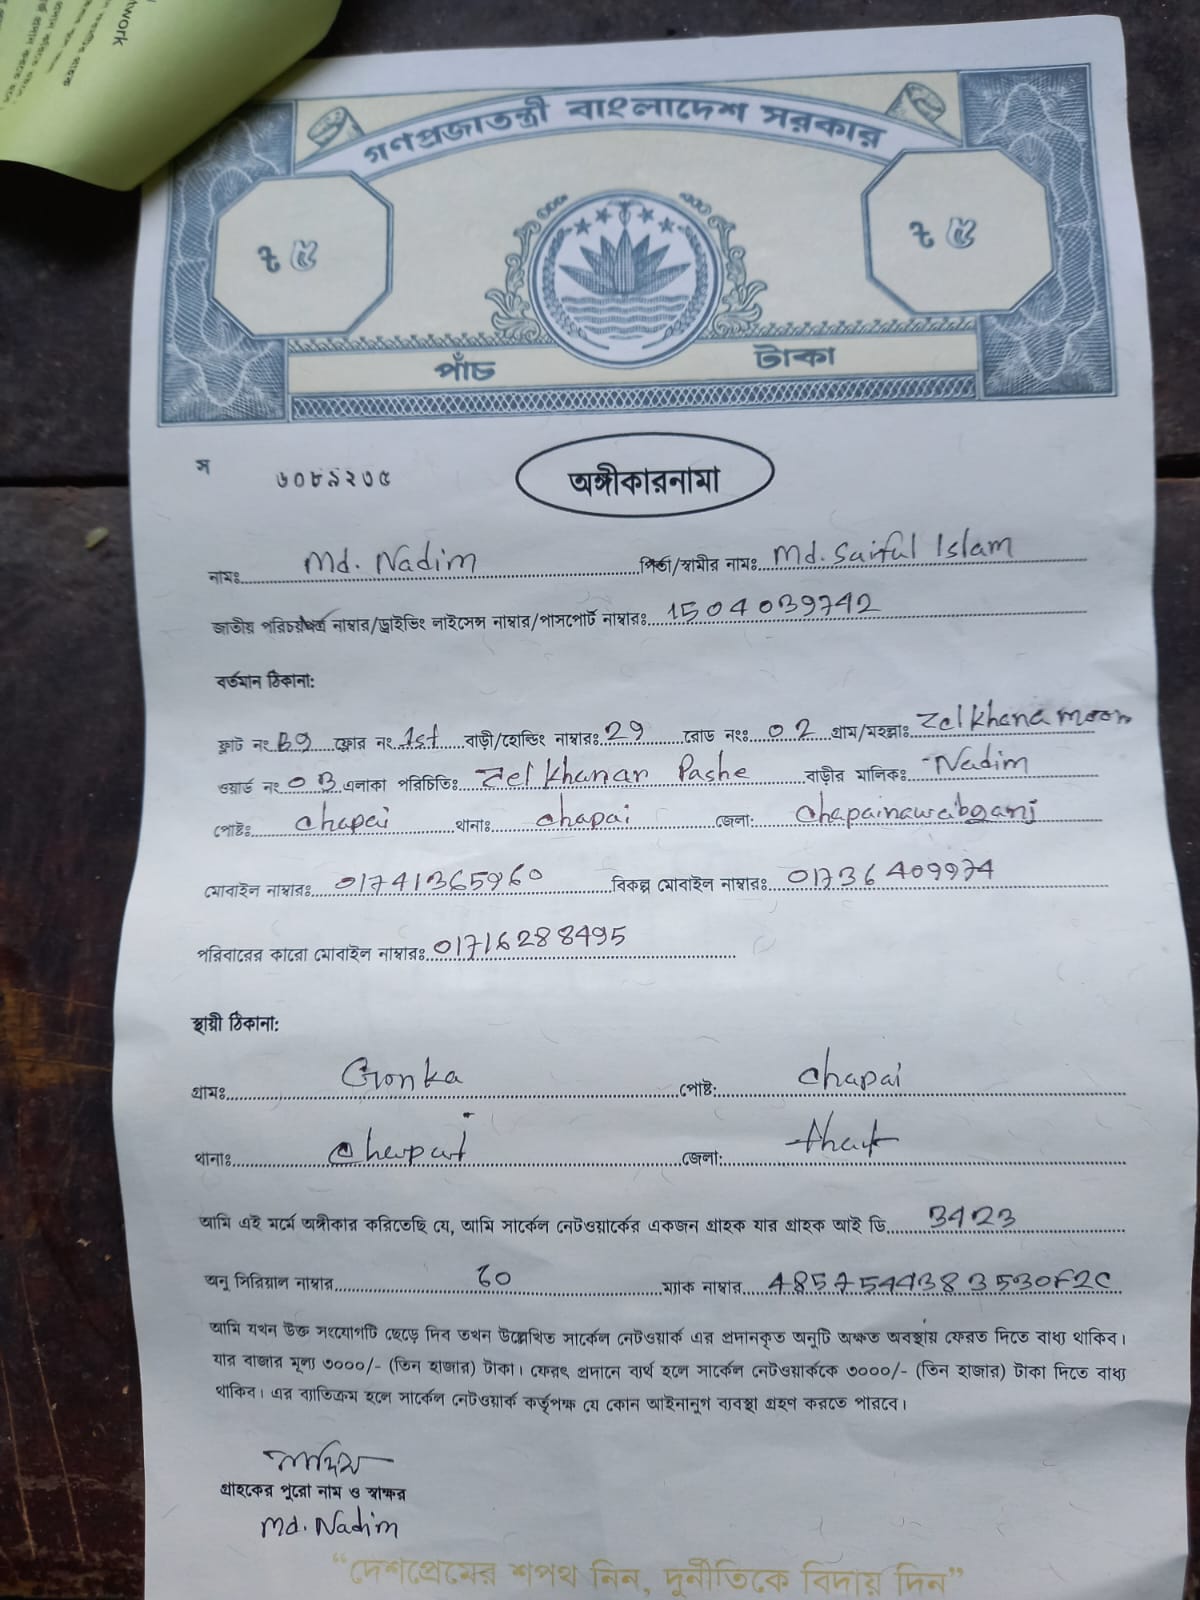 twork
গণপ্রজাতন্ত্রী বাংলাদেশ সরকার
ট ৫ ট ৫
পাঁচ টাকা
স ৬০৮৯২৩৫ অঙ্গীকারনামা
নামঃ Md. Nadim পিতা/স্বামীর নামঃ Md. Saiful Islam
জাতীয় পরিচয়পত্র নাম্বার/ড্রাইভিং লাইসেন্স নাম্বার/পাসপোর্ট নাম্বারঃ 1504039742
বর্তমান ঠিকানা:
ফ্লাট নং B9 ফ্লোর নং 1st বাড়ী/হোল্ডিং নাম্বারঃ 29 রোড নংঃ 02 গ্রাম/মহল্লাঃ Zelkhana moor
ওয়ার্ড নং 03 এলাকা পরিচিতিঃ Zel khanar Pashe বাড়ীর মালিকঃ Nadim
পোষ্টঃ chapai থানাঃ chapai জেলা: Chapainawabganj
মোবাইল নাম্বারঃ 01741365960 বিকল্প মোবাইল নাম্বারঃ 01736409974
পরিবারের কারো মোবাইল নাম্বারঃ 01716288495
স্থায়ী ঠিকানা:
গ্রামঃ Gonka পোষ্ট: chapai
থানাঃ Chapai জেলা:
আমি এই মর্মে অঙ্গীকার করিতেছি যে, আমি সার্কেল নেটওয়ার্কের একজন গ্রাহক যার গ্রাহক আই ডি 3423
অনু সিরিয়াল নাম্বার 60 ম্যাক নাম্বার 4857544383530F2C
আমি যখন উক্ত সংযোগটি ছেড়ে দিব তখন উল্লেখিত সার্কেল নেটওয়ার্ক এর প্রদানকৃত অনুটি অক্ষত অবস্থায় ফেরত দিতে বাধ্য থাকিব।
যার বাজার মূল্য ৩০০০/- (তিন হাজার) টাকা। ফেরৎ প্রদানে ব্যর্থ হলে সার্কেল নেটওয়ার্ককে ৩০০০/- (তিন হাজার) টাকা দিতে বাধ্য
থাকিব। এর ব্যাতিক্রম হলে সার্কেল নেটওয়ার্ক কর্তৃপক্ষ যে কোন আইনানুগ ব্যবস্থা গ্রহণ করতে পারবে।
নাদিম
গ্রাহকের পুরো নাম ও স্বাক্ষর
Md. Nadim
“দেশপ্রেমের শপথ নিন, দুর্নীতিকে বিদায় দিন”